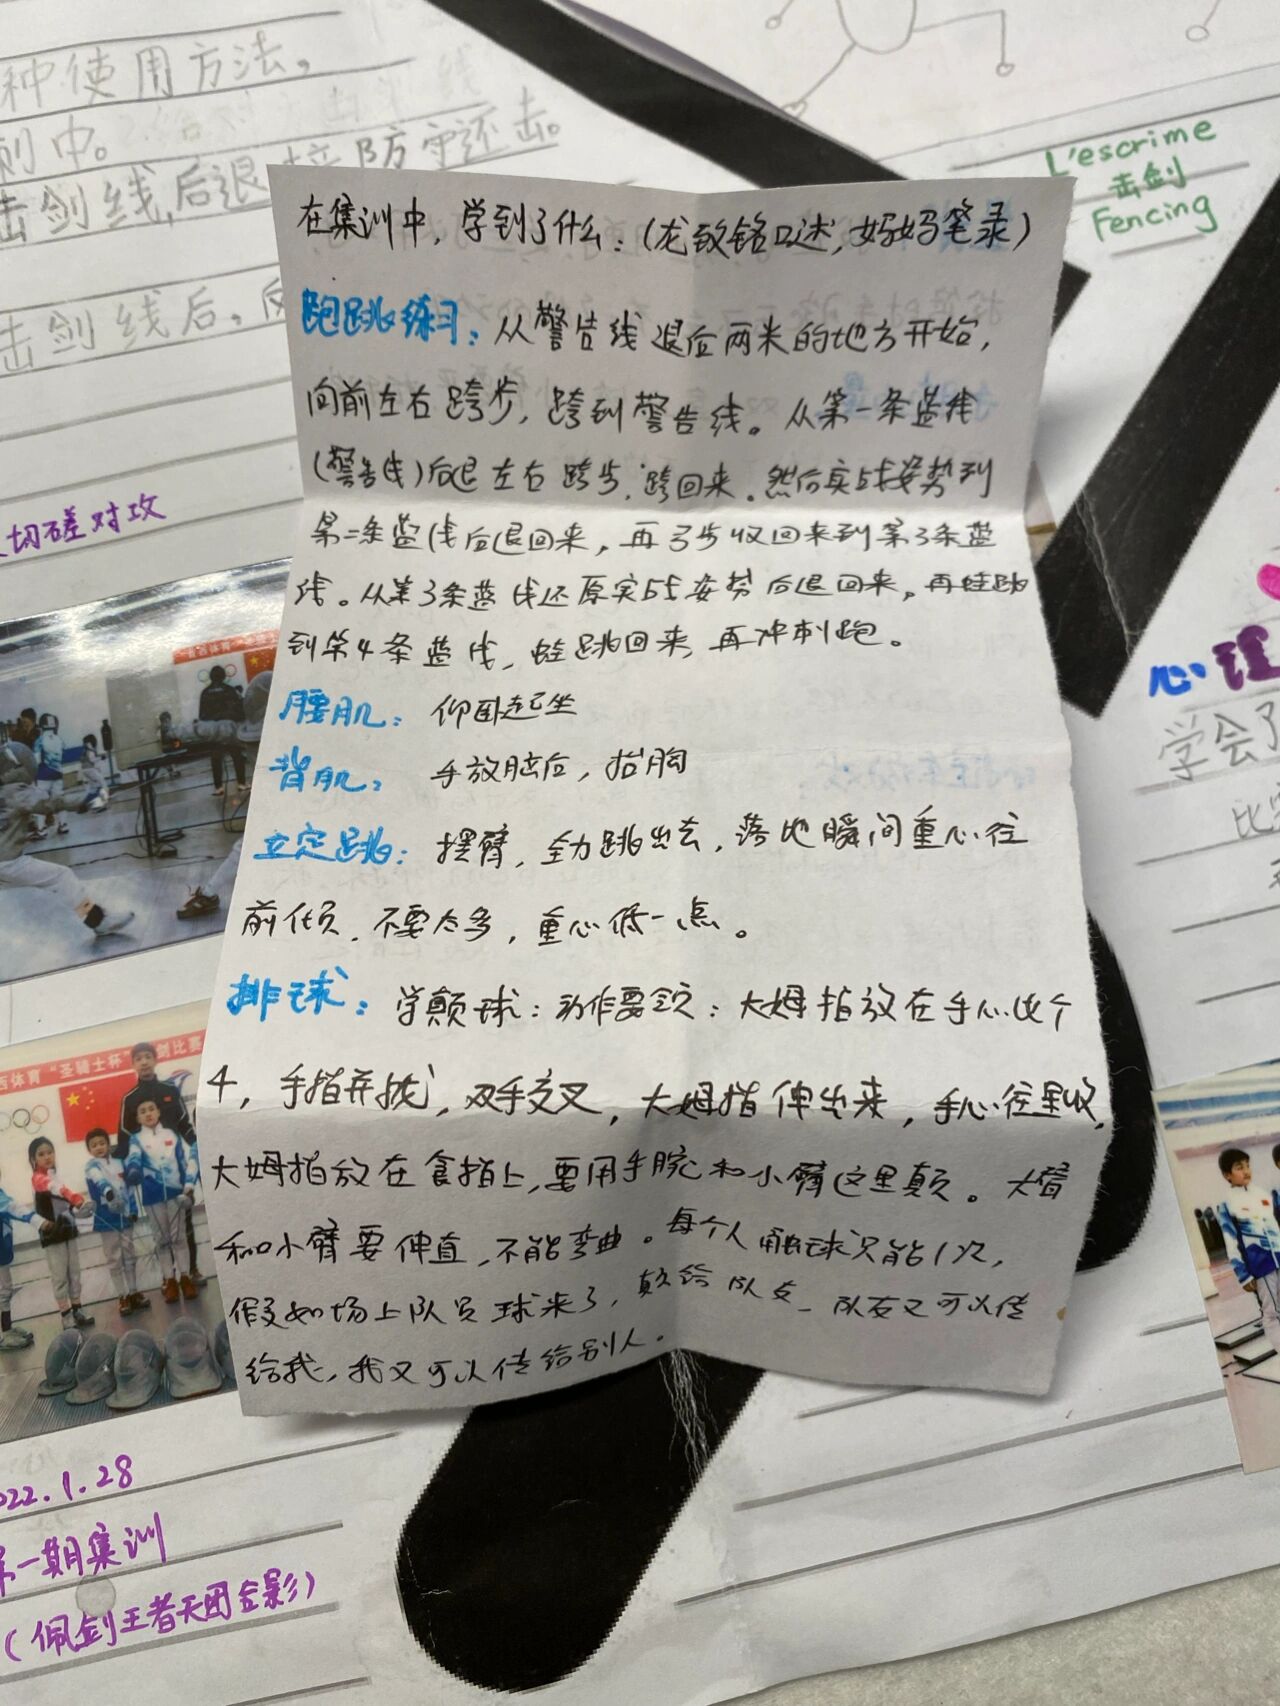 种使用方法，
刺中。
击剑线，后退
防守还击。
击剑线后，
L'escrime
击剑
Fencing
在集训中，学到了什么：（龙致铭口述，妈妈笔录）
跑跳练习：从警告线退后两米的地方开始，
向前左右跨步，跨到警告线。从第一条蓝线
（警告线）后退左右跨步，跨回来，然后实战姿势到
第二条蓝线后退回来，再弓步收回来到第3条蓝
线。从第3条蓝线还原实战姿势后退回来，再蛙跳
到第4条蓝线，蛙跳回来，再冲刺跑。
腰肌：仰卧起坐
背肌：手放脑后，抬胸
立定跳：摆臂，全力跳出去，落地瞬间重心往
前倾，不要太多，重心低一点。
排球：学颠球：动作要领：大姆指放在手心比个
4，手指并拢，双手交叉，大姆指伸出来，手心往里收，
大姆指放在食指上，要用手腕和小臂这里颠。大臂
和小臂要伸直，不能弯曲。每个人触球只能1次，
假如场上队员球来了，颠给队友，队友又可以传
给我，我又可以传给别人。
切磋对攻
心理
学会了
比
西体育“圣骑士杯” 剑比赛
022.1.28
第一期集训
（佩剑王者天团合影）